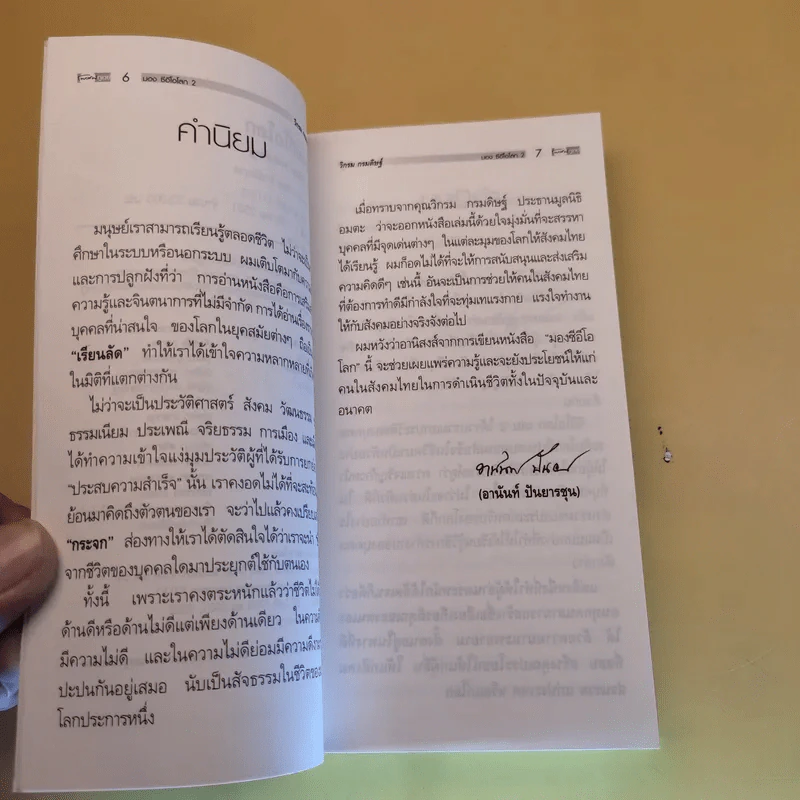 6 มอง ซีอีโอโลก 2
คำนิยม
มนุษย์เราสามารถเรียนรู้ตลอดชีวิต ไม่ว่าจะเป็น
ศึกษาในระบบหรือนอกระบบ ผมเติบโตมากับความ
และการปลูกฝังที่ว่า การอ่านหนังสือคือการเสริม
ความรู้และจินตนาการที่ไม่มีจำกัด การได้อ่านเรื่อง
บุคคลที่น่าสนใจ ของโลกในยุคสมัยต่างๆ ถือเป็น
“เรียนลัด” ทำให้เราได้เข้าใจความหลากหลาย
ในมิติที่แตกต่างกัน
ไม่ว่าจะเป็นประวัติศาสตร์ สังคม วัฒนธรรม
ธรรมเนียม ประเพณี จริยธรรม การเมือง และ
ได้ทำความเข้าใจแง่มุมประวัติผู้ที่ได้รับการ
“ประสบความสำเร็จ” นั้น เราคงอดไม่ได้ที่จะสะท้อน
ย้อนมาคิดถึงตัวตนของเรา จะว่าไปแล้วคงเปรียบ
“กระจก” ส่องทางให้เราได้ตัดสินใจได้ว่าเราจะนำ
จากชีวิตของบุคคลใดมาประยุกต์ใช้กับตนเอง
ทั้งนี้ เพราะเราคงตระหนักแล้วว่าชีวิตไม่ได้
ด้านดีหรือด้านไม่ดีแต่เพียงด้านเดียว ในความดี
มีความไม่ดี และในความไม่ดีย่อมมีความดี
ปะปนกันอยู่เสมอ นับเป็นสัจธรรมในชีวิตของ
โลกประการหนึ่ง
วิกรม กรมดิษฐ์ มอง ซีอีโอโลก 2 7
เมื่อทราบจากคุณวิกรม กรมดิษฐ์ ประธานมูลนิธิ
อมตะ ว่าจะออกหนังสือเล่มนี้ด้วยใจมุ่งมั่นที่จะสรรหา
บุคคลที่มีจุดเด่นต่างๆ ในแต่ละมุมของโลกให้สังคมไทย
ได้เรียนรู้ ผมก็อดไม่ได้ที่จะให้การสนับสนุนและส่งเสริม
ความคิดดีๆ เช่นนี้ อันจะเป็นการช่วยให้คนในสังคมไทย
ที่ต้องการทำดีมีกำลังใจที่จะทุ่มเทแรงกาย แรงใจทำงาน
ให้กับสังคมอย่างจริงจังต่อไป
ผมหวังว่าอานิสงส์จากการเขียนหนังสือ “มองซีอีโอ
โลก” นี้ จะช่วยเผยแพร่ความรู้และจะยังประโยชน์ให้แก่
คนในสังคมไทยในการดำเนินชีวิตทั้งในปัจจุบันและ
อนาคต
อานันท์ ปันยารชุน
(อานันท์ ปันยารชุน)